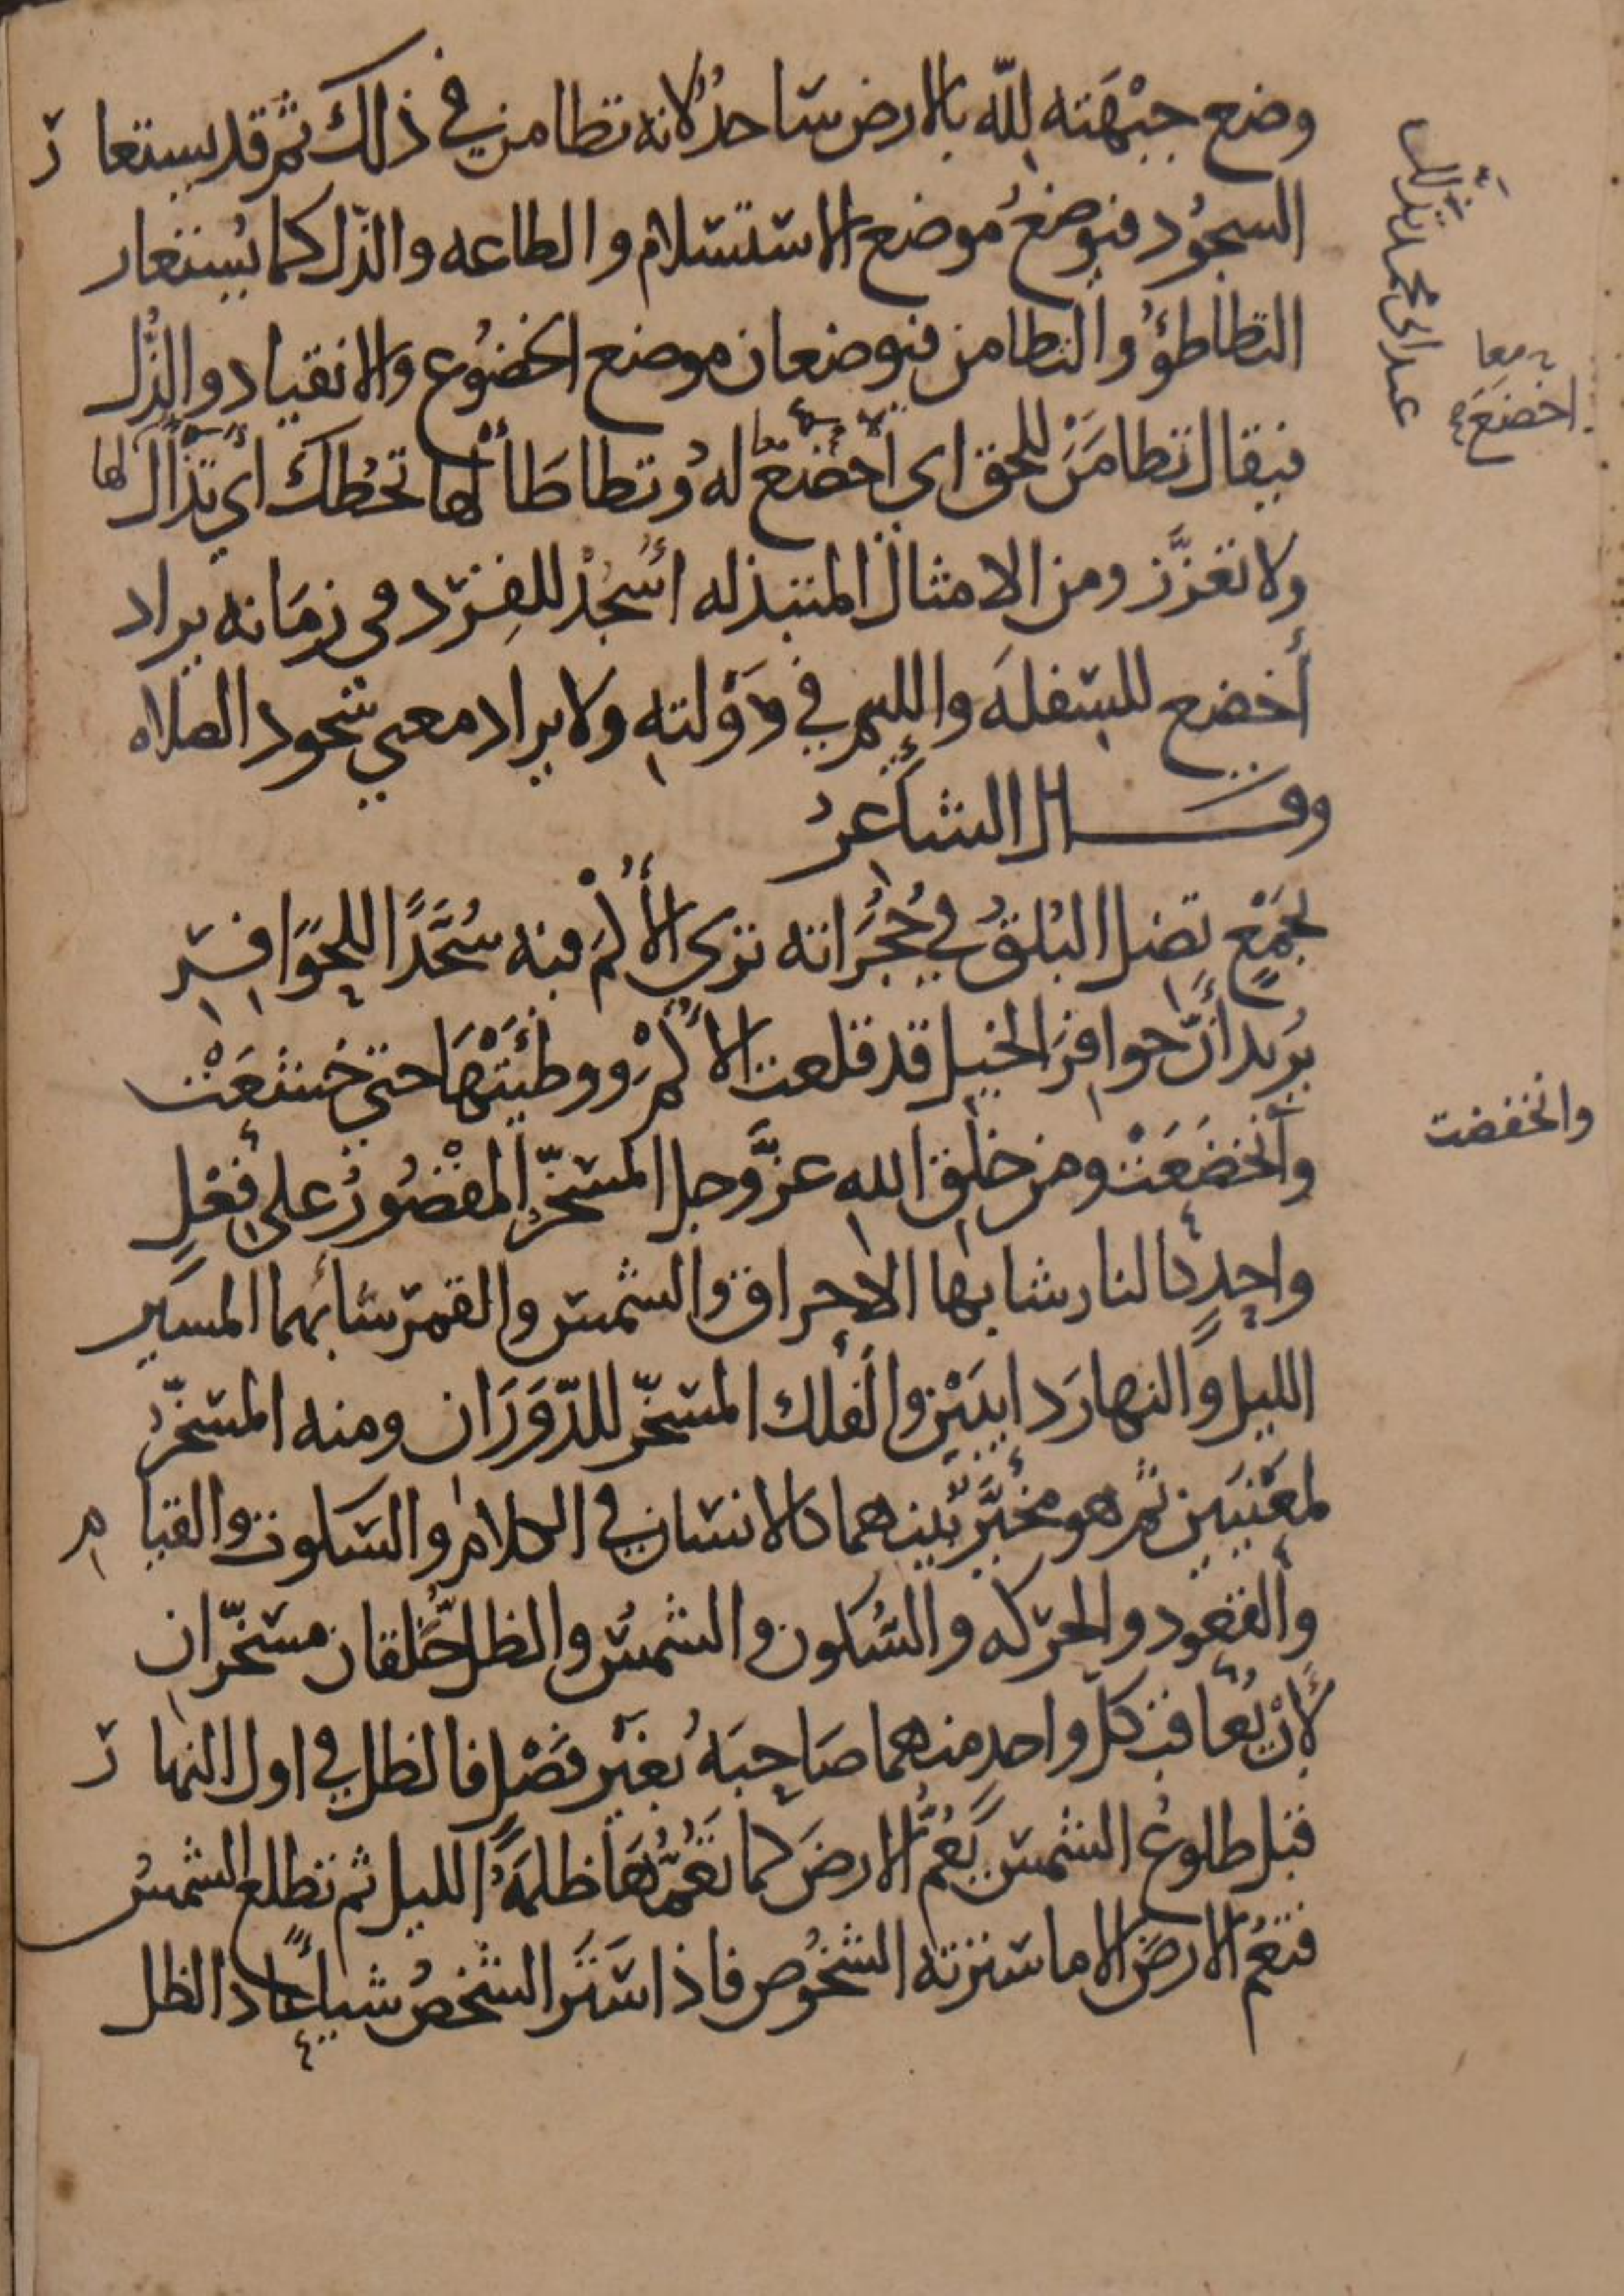 وضع جبْهَته لله بالارض ساجدٌ لانه تطامن في ذلك ثم قد يستعار
السجُود فيوضعُ موضع الاستسلام والطاعه والذل كما يُستعار
التطاطؤُ والتطامن فيوضعان موضع الخضُوع والانقياد والذُل
فيقال تطامَنْ للحق اى أخضعْ لهُ وتطاطَأْ لها تخطك أي تذلل لها
ولا تعزَّز ومن الامثال المبتذله اسْجُدْ للقِرْد في زمَانه يراد
أخضع للسفلَه واللئيم في دَوْلته ولا يراد معنى سجود الصلاه
وقال الشاعرُ
بجَمْعٍ تضل البُلقُ في حُجُرَاته ترى الأُكْمَ فيه سُجَّدًا للحوَافِر
يُريد أنّ حوافرَ الخيل قد قلعت الأُكْمَ ووطِئَتْهَا حتى خشعَتْ
وأنخضَعَتْ ومن خلق الله عزَّ وجل المسخّرُ المقْصُورُ على فعْلٍ
واحدٍ كالنار شانها الاحراق والشمس والقمر شانهما المسير
الليل والنهارَ دايبَيْن والفَلك المسخّر للدّوَرَان ومنه المسخّرُ
لمعْنَيَين ثم هو مخيَّر بينهما كالانسان في الكلام والسكوت والقيام
والقعود والحركه والسُكون والشمسُ والظل خَلقان مسخّران
لأِنْ يُعاقبَ كلّ واحد منهما صَاحِبَهُ بغيْر فصْل فالظل في اول النهار
قبل طلوع الشمس يَعُمُّ الارضَ كما تَعُمُّهَا ظلمَةُ الليل ثم تطلع الشمسُ
فتعُم الارضَ الا ما سترته الشخُوص فاذا ستَرَ الشخصُ شيأً عاد الظل
معا
اخضعَ
وانخفضت